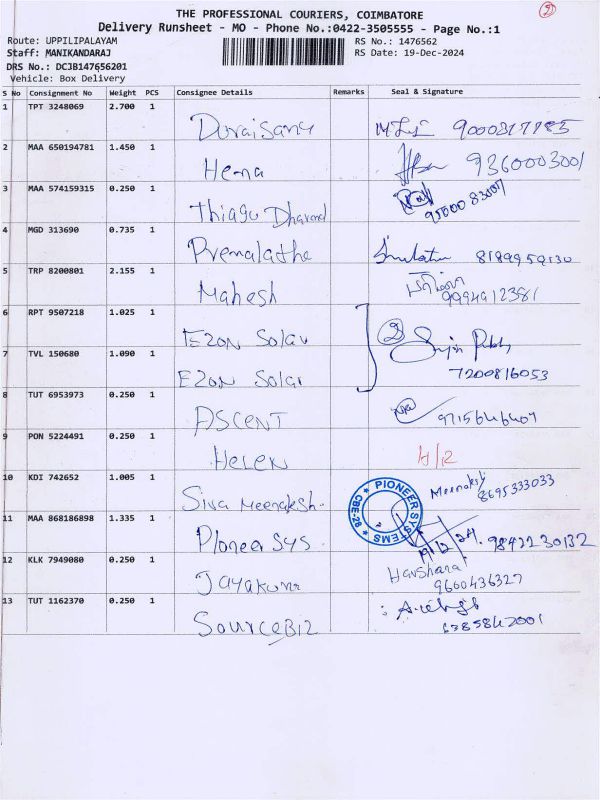 THE PROFESSIONAL COURIERS, COIMBATORE
Delivery Runsheet - MO - Phone No.:0422-3505555 - Page No.:1
Route: UPPILIPALAYAM RS No.: 1476562
Staff: MANIKANDARAJ RS Date: 19-Dec-2024
DRS No.: DCJB147656201
Vehicle: Box Delivery
S No Consignment No Weight PCS Consignee Details Remarks Seal & Signature
1 TPT 3248069 2.700 1
Duraisamy
2 MAA 650194781 1.450 1
Hema 9360003001
3 MAA 574159315 0.250 1
Thiagu
4 MGD 313690 0.735 1
Premalatha
5 TRP 8200801 2.155 1
Mahesh 9994912381
6 RPT 9507218 1.025 1
EZON Solar
7 TVL 150680 1.090 1
EZON Solar 7200816053
8 TUT 6953973 0.250 1
ASCENT
9 PON 5224491 0.250 1
HELEN
10 KDI 742652 1.005 1
Siva Meenaksh. Meenakshi 8695333033
PIONEER SYSTEMS
CBE-28
11 MAA 868186898 1.335 1
Pioneer SYS 19/12/24
12 KLK 7949080 0.250 1
Jayakumr Harshana
9600436327
13 TUT 1162370 0.250 1
SourceBiz